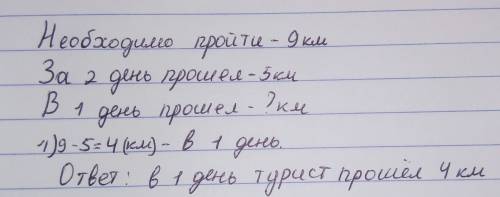 Необходимо пройти - 9 км
За 2 день прошел - 5 км
В 1 день прошел - ? км
1) 9 - 5 = 4 (км) - в 1 день.
Ответ: в 1 день турист прошёл 4 км